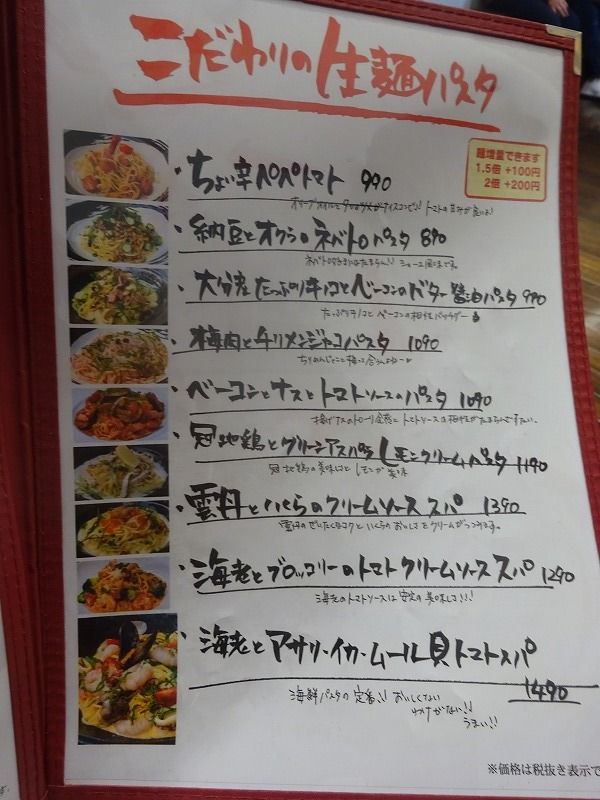 こだわりの生麺パスタ
麺増量できます
1.5倍 +100円
2倍 +200円
・ちょい辛ペペトマト 990
トマトの甘みが良いよ!
・納豆とオクラのネバトロパスタ 890
ネバトロ好きにはたまらん!! ショーユ風味です。
・大分産たっぷりキノコとベーコンのバター醤油パスタ 990
たっぷりキノコとベーコンの相性もバッチグー
・梅肉とチリメンジャコパスタ 1090
ちりめんじゃこと梅って合うんよねー
・ベーコンとナスとトマトソースのパスタ 1090
揚げナスのトロ〜リ食感とトマトソースは相性がたまらんですたい。
・冠地鶏とグリーンアスパラ レモンクリームパスタ 1190
冠地鶏の美味しさとレモンが美味
・雲丹といくらのクリームソーススパ 1390
雲丹のぜいたくなコクといくらのおいしさをクリームがつつみます。
・海老とブロッコリーのトマトクリームソーススパ 1290
海老のトマトソースは安定の美味しさ!!!
・海老とアサリ・イカ・ムール貝トマトスパ
1490
海鮮パスタの定番!! おいしくない
わけがない!!
うまい!!
※価格は税抜き表示で